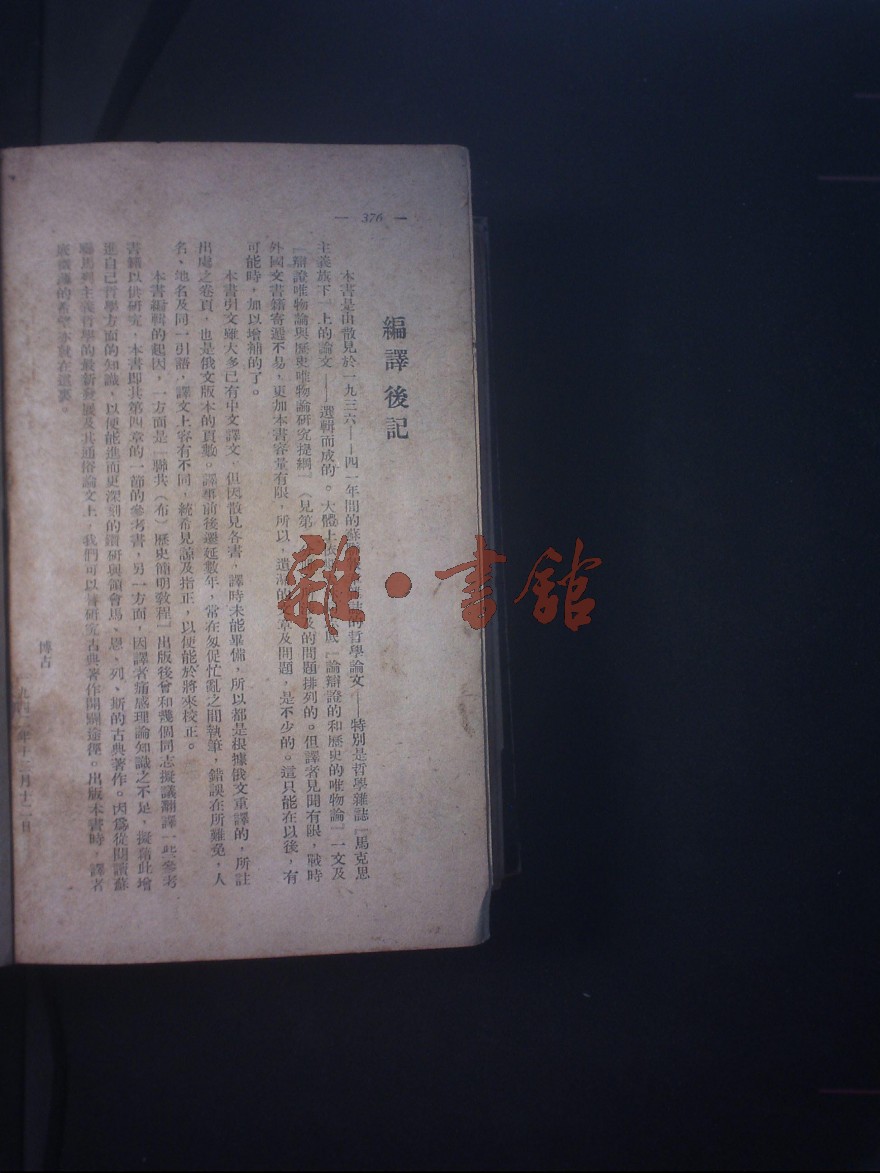 — 376 —
編譯後記
本書是由散見於一九三六——四一年間的蘇 誌的哲學論文——特別是哲學雜誌『馬克思
主義旗下』上的論文——選輯而成的。大體上依 『論辯證的和歷史的唯物論』一文及
『辯證唯物論與歷史唯物論研究提綱』（見第 及的問題排列的。但譯者見聞有限，戰時
外國文書籍寄遞不易，更加本書容量有限，所以，遺漏的 章及問題，是不少的。這只能在以後，有
可能時，加以增補的了。
本書引文雖大多已有中文譯文，但因散見各書，譯時未能畢備，所以都是根據俄文重譯的，所註
出處之卷頁，也是俄文版本的頁數。譯事前後遷延數年，常在匆促忙亂之間執筆，錯誤在所難免，人
名、地名及同一引語，譯文上容有不同，統希見諒及指正，以便能於將來校正。
本書編輯的起因，一方面是『聯共（布）歷史簡明教程』出版後曾和幾個同志擬議翻譯一些參考
書籍以供研究，本書即其第四章的一節的參考書，另一方面，因譯者痛感理論知識之不足，擬藉此增
進自己哲學方面的知識，以便能進而更深刻的鑽研與領會馬、恩、列、斯的古典著作。因為從閱讀蘇
聯馬列主義哲學的最新發展及其通俗論文上，我們可以替研究古典著作開闢途徑。出版本書時，譯者
的希望亦就在這裏。
博古
一九四 年十二月十二日
雜·書館